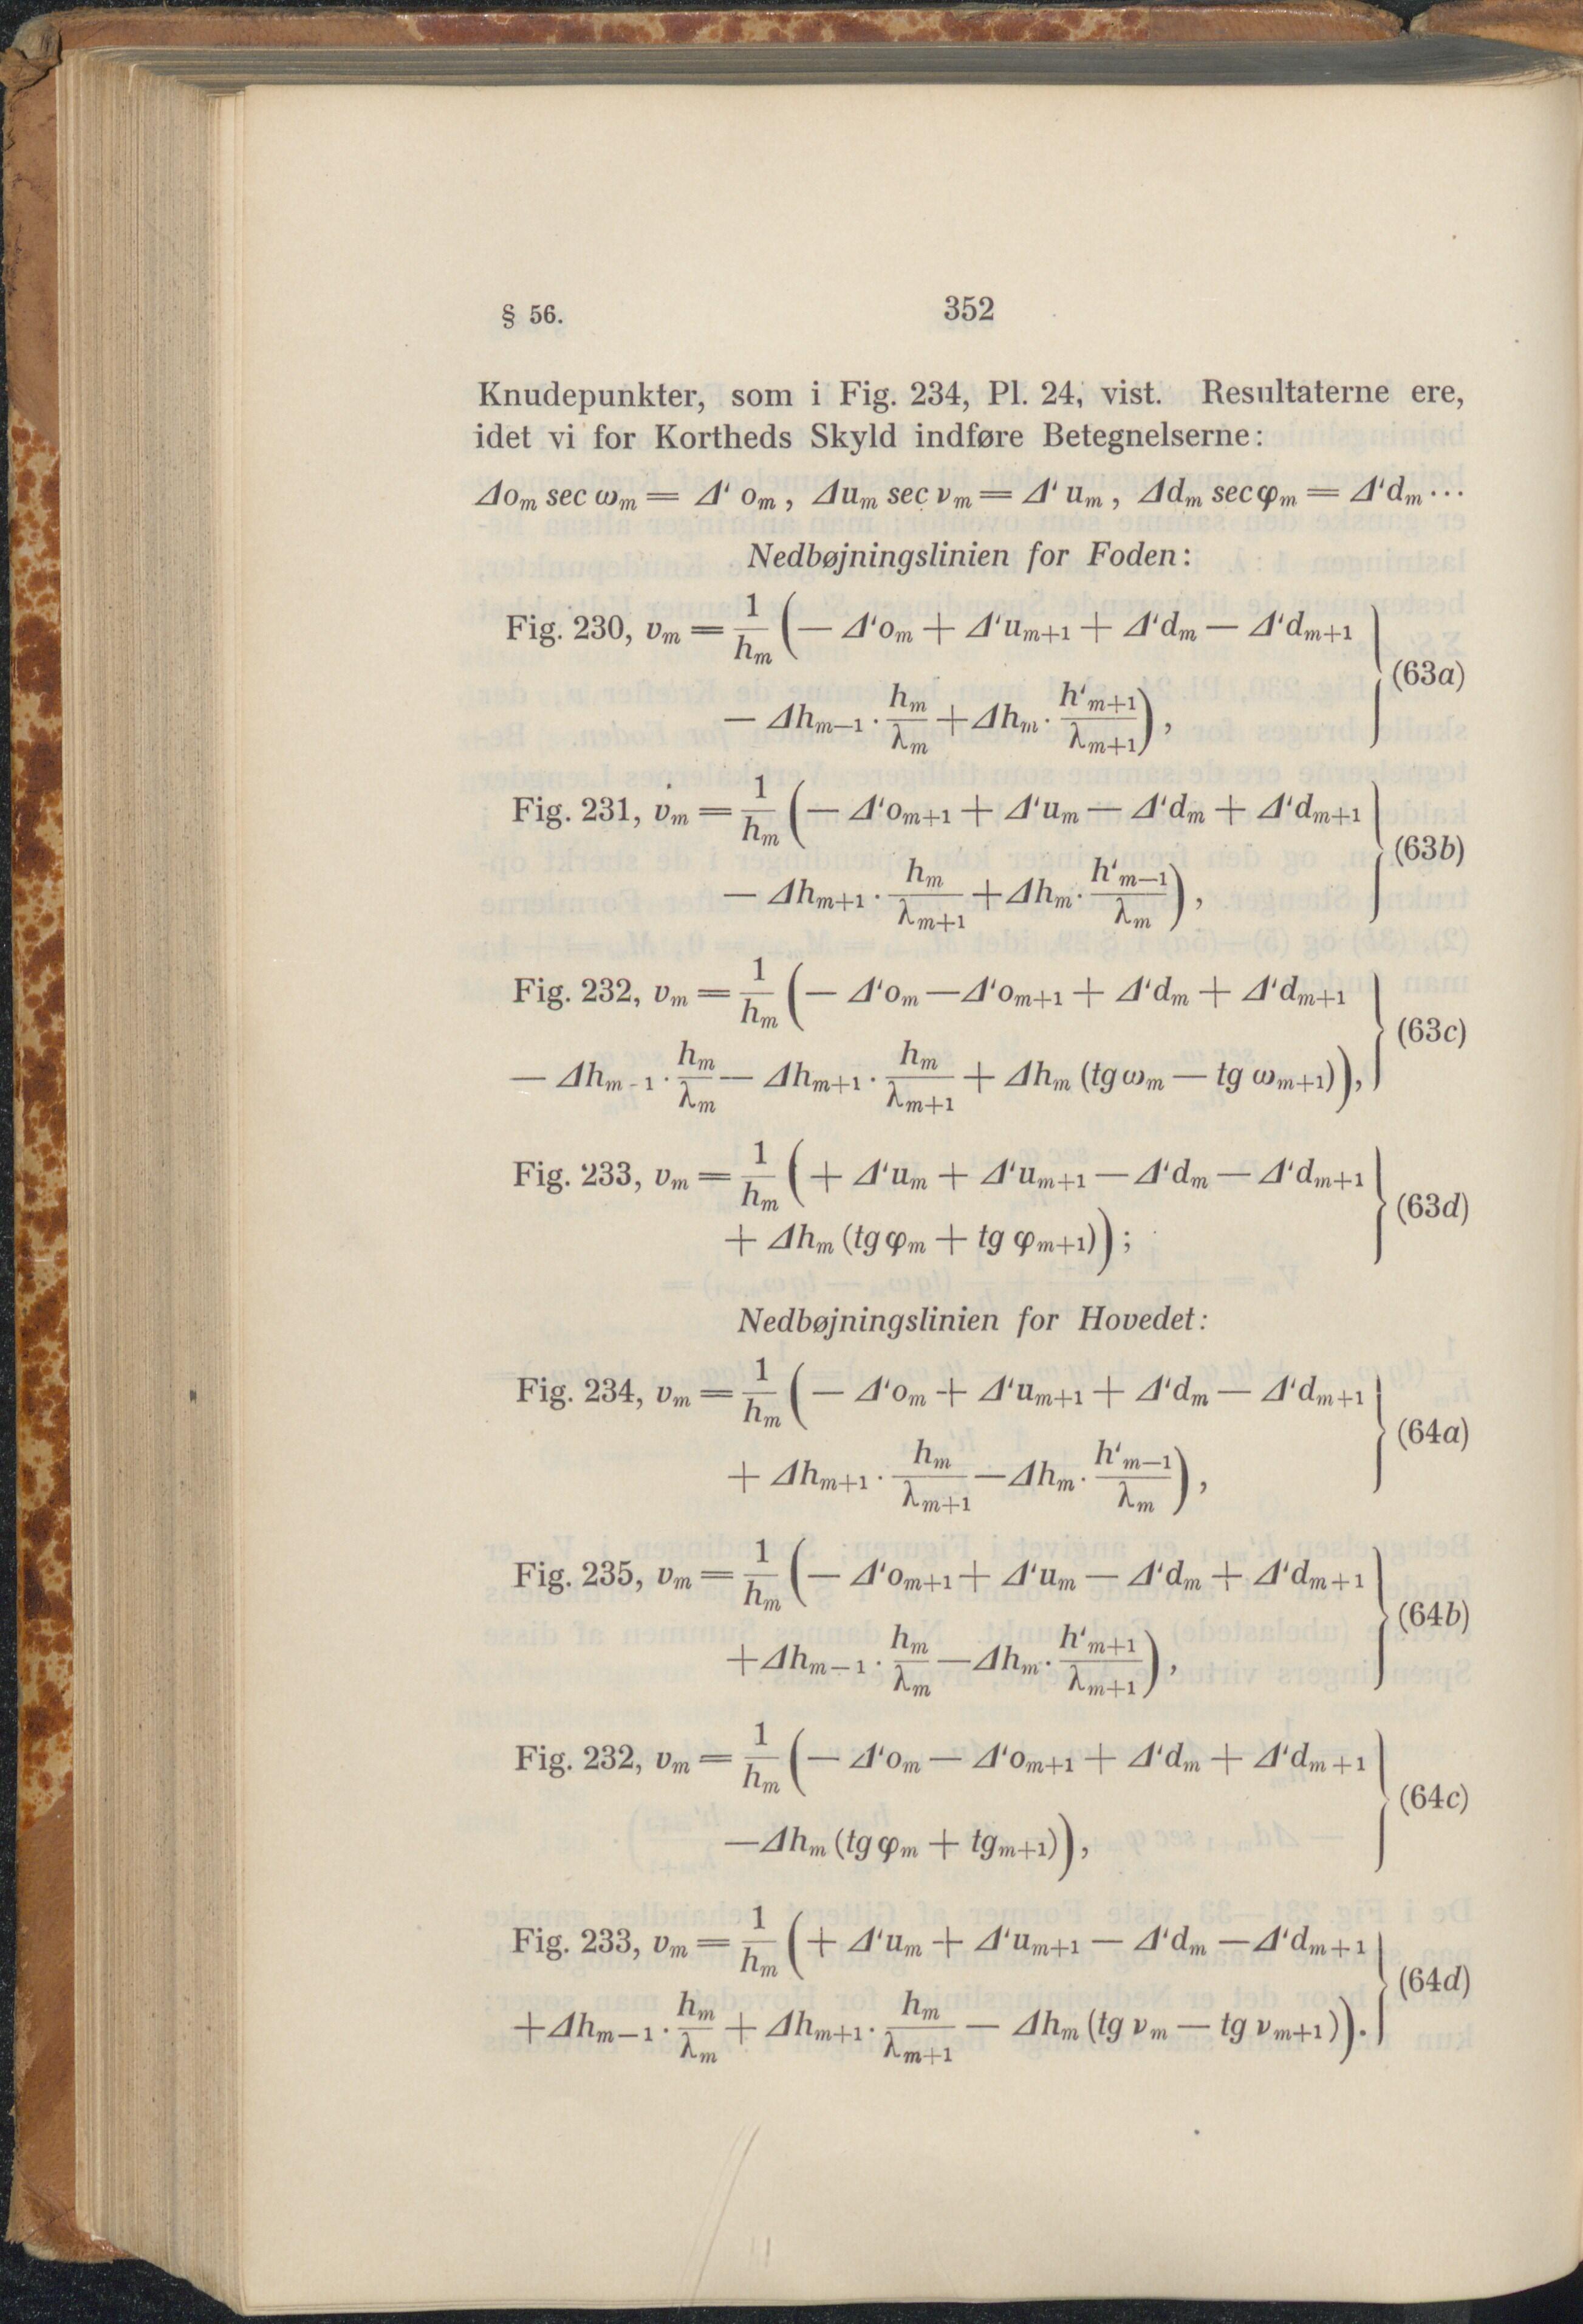 § 56. 352
Knudepunkter, som i Fig. 234, Pl. 24, vist. Resultaterne ere,
idet vi for Kortheds Skyld indføre Betegnelserne:
Δo_m sec ω_m = Δ‘ o_m , Δu_m sec ν_m = Δ‘ u_m , Δd_m sec φ_m = Δ‘d_m ...
Nedbøjningslinien for Foden:
Fig. 230, v_m = 1/h_m (— Δ‘o_m + Δ‘u_{m+1} + Δ‘d_m — Δ‘d_{m+1}
— Δh_{m—1} · h_m/λ_m + Δh_m · h‘_{m+1}/λ_{m+1}) , (63a)
Fig. 231, v_m = 1/h_m (— Δ‘o_{m+1} + Δ‘u_m — Δ‘d_m + Δ‘d_{m+1}
— Δh_{m+1} · h_m/λ_{m+1} + Δh_m · h‘_{m—1}/λ_m) , (63b)
Fig. 232, v_m = 1/h_m (— Δ‘o_m — Δ‘o_{m+1} + Δ‘d_m + Δ‘d_{m+1}
— Δh_{m-1} · h_m/λ_m — Δh_{m+1} · h_m/λ_{m+1} + Δh_m (tg ω_m — tg ω_{m+1})), (63c)
Fig. 233, v_m = 1/h_m (+ Δ‘u_m + Δ‘u_{m+1} — Δ‘d_m — Δ‘d_{m+1}
+ Δh_m (tg φ_m + tg φ_{m+1})) ; (63d)
Nedbøjningslinien for Hovedet:
Fig. 234, v_m = 1/h_m (— Δ‘o_m + Δ‘u_{m+1} + Δ‘d_m — Δ‘d_{m+1}
+ Δh_{m+1} · h_m/λ_{m+1} — Δh_m · h‘_{m—1}/λ_m) , (64a)
Fig. 235, v_m = 1/h_m (— Δ‘o_{m+1} + Δ‘u_m — Δ‘d_m + Δ‘d_{m+1}
+ Δh_{m—1} · h_m/λ_m — Δh_m · h‘_{m+1}/λ_{m+1}) , (64b)
Fig. 232, v_m = 1/h_m (— Δ‘o_m — Δ‘o_{m+1} + Δ‘d_m + Δ‘d_{m+1}
— Δh_m (tg φ_m + tg_{m+1})), (64c)
Fig. 233, v_m = 1/h_m (+ Δ‘u_m + Δ‘u_{m+1} — Δ‘d_m — Δ‘d_{m+1}
+ Δh_{m—1} · h_m/λ_m + Δh_{m+1} · h_m/λ_{m+1} — Δh_m (tg ν_m — tg ν_{m+1})). (64d)